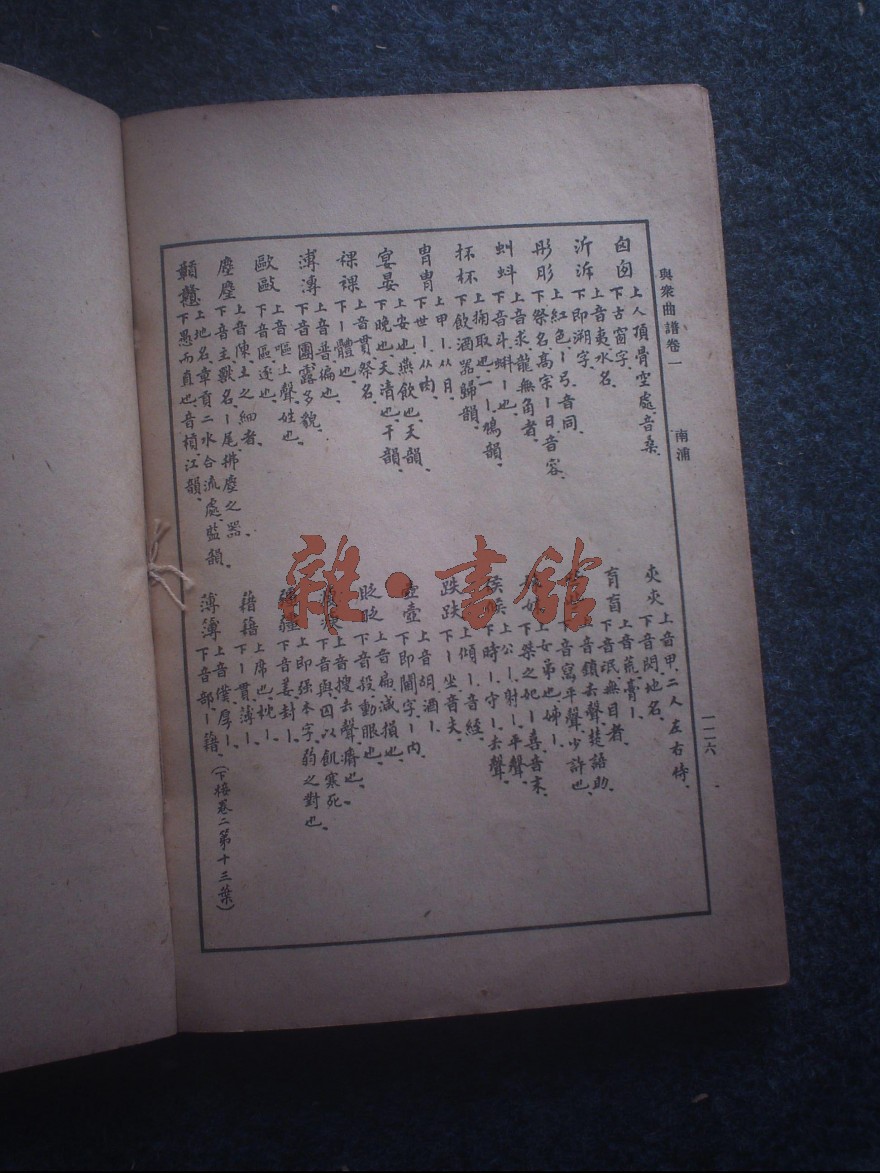 與衆曲譜卷一
南浦
一一六
囟囱
上人頂骨空處、音桑、
下古窗字、
沂泝
上音夷、水名、
下即溯字、
彤肜
上紅色、ー弓、音同、
下祭名、高宗ー日、音容、
虯蚪
上音求、龍無角者、
下音斗、蝌ー也、
抔杯
上掬取也、一ー、鳩韻、
下飲酒器、歸韻、
冑胄
上甲ー、从冃、
下世ー、从肉、
宴晏
上安也、燕飲也、天韻、
下晚也、天清也、干韻、
祼裸
上音貫、祭名、
下ー體也、
溥漙
上音普、徧也、
下音團、露多貌、
歐毆
上音嘔上聲、姓也、
下音區、逐也、
塵麈
上音陳、土之細者、
下音主、獸名、ー尾、拂塵之器、
贛戇
上地名、章貢二水合流處、藍韻、
下愚而直也、音槓、江韻、
夾㚒
上音甲、二人左右持、
下音閃、地名、
肓盲
上音荒、膏ー、
下音氓、無目者、
音寫平聲、少許也、
音鎖去聲、楚語助、
上女弟也、姊ー、
下桀之妃ー喜、音末、
侯候
上公ー、射ー、平聲、
下時ー、守ー、去聲、
上傾ー、音經、
下ー坐、音夫、
壺壼
上音胡、酒ー、
下即閫字、ー内、
貶眨
上音扁、減損也、
下音殺、動眼也、
上音搜去聲、瘠也、
下音與、因以飢寒死、
彊疆
上即强本字、弱之對也、
下音姜、封ー、
藉籍
上席也、枕ー、
下ー貫、簿ー、
薄簿
上音僕、厚ー、
下音部、ー籍、
(下接卷二第十三葉)
雜·書館